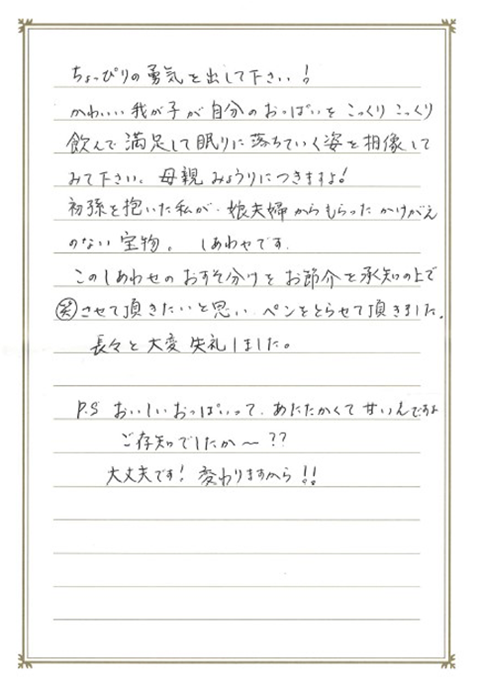 ちょっぴりの勇気を出して下さい!
かわいい我が子が自分のおっぱいをこっくりこっくり
飲んで満足して眠りに落ちていく姿を想像して
みて下さい。母親みょうりにつきますよ!
初孫を抱いた私が、娘夫婦からもらったかけがえ
のない宝物。しあわせです。
このしあわせのおすそ分けをお節介を承知の上で
㊗させて頂きたいと思い、ペンをとらせて頂きました。
長々と大変失礼しました。
P.S おいしいおっぱいって、あたたかくて甘いんですよ
ご存知でしたか〜??
大丈夫です!変わりますから!!